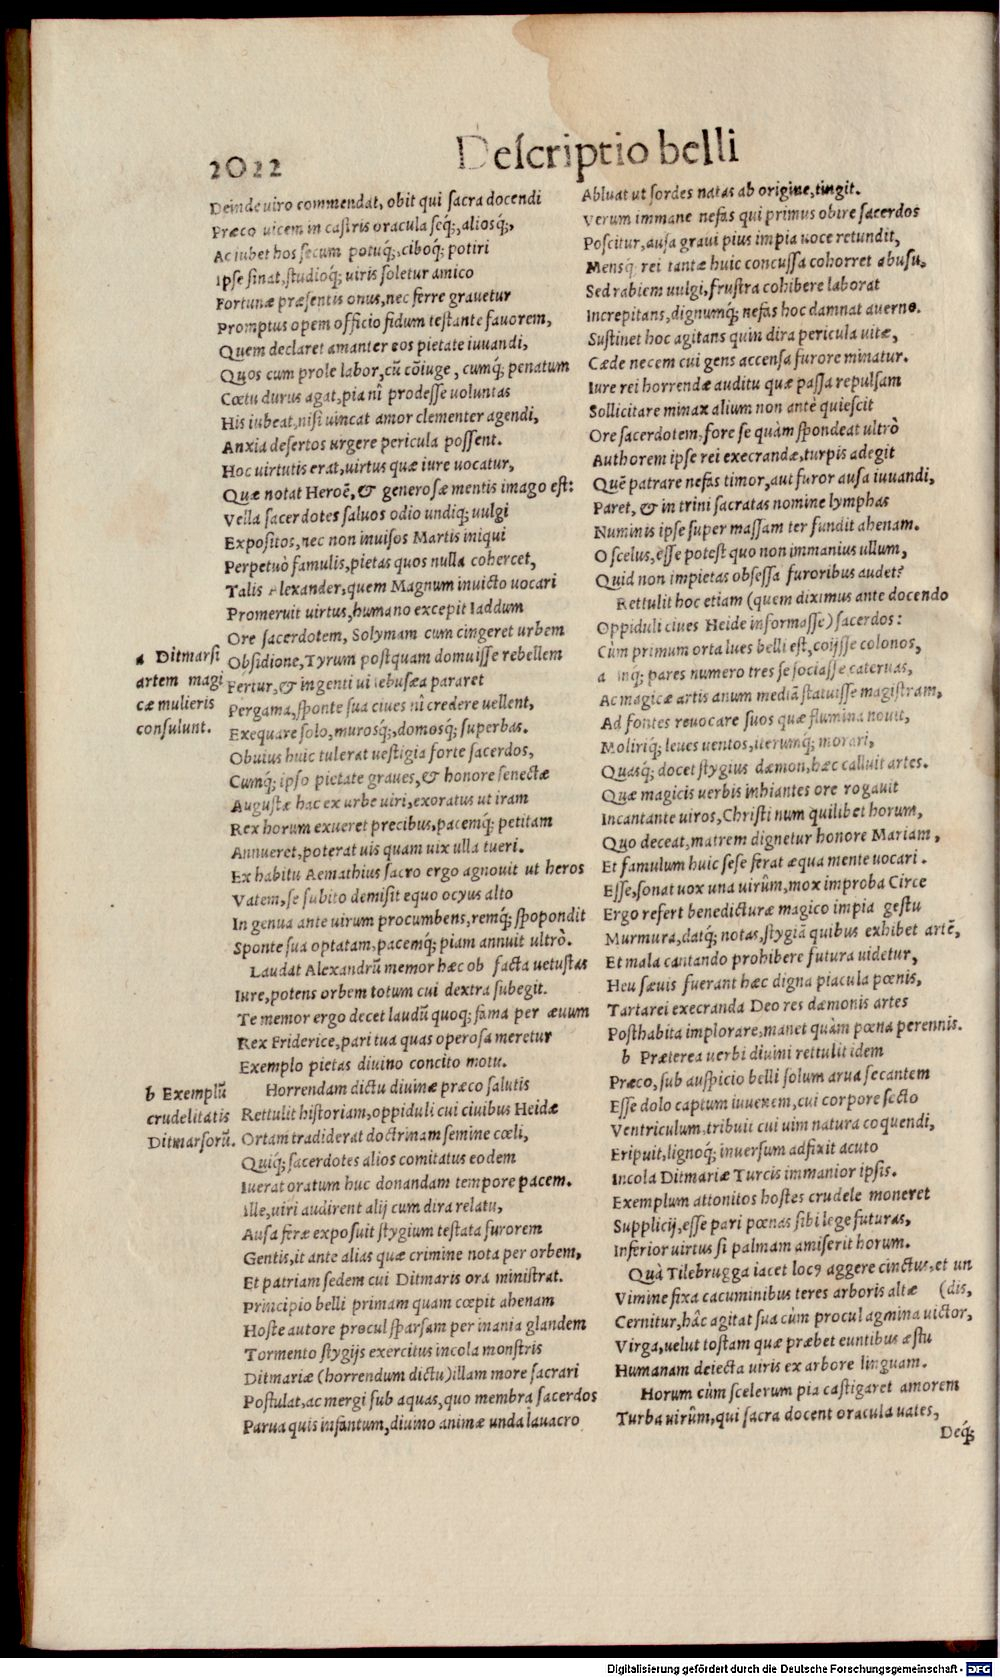 2022
Descriptio belli
Deinde uiro commendat, obit qui sacra docendi
Præco uicem in castris oracula seq́;, aliosq́;,
Ac iubet hos secum potuq́;, ciboq́; potiri
Ipse sinat, studioq́; uiris soletur amico
Fortunæ præsentis onus, nec ferre grauetur
Promptus opem officio fidum testante fauorem,
Quem declaret amanter eos pietate iuuandi,
Quos cum prole labor, cũ cõiuge, cumq́; penatum
Cœtu durus agat, pia nî prodesse uoluntas
His iubeat, nisi uincat amor clementer agendi,
Anxia desertos urgere pericula possent.
Hoc uirtutis erat, uirtus quæ iure uocatur,
Quæ notat Heroẽ, & generosæ mentis imago est:
Velle sacerdotes saluos odio undiq; uulgi
Expositos, nec non inuisos Martis iniqui
Perpetuò famulis, pietas quos nulla cohercet,
Talis Alexander, quem Magnum inuicto uocari
Promeruit uirtus, humano excepit Iaddum
Ore sacerdotem, Solymam cum cingeret urbem
Obsidione, Tyrum postquam domuisse rebellem
Fertur, & ingenti ui Iebusæa pararet
Pergama, sponte sua ciues ni credere uellent,
Exequare solo, murosq́;, domosq́; superbas.
Obuius huic tulerat uestigia forte sacerdos,
Cumq́; ipso pietate graues, & honore senectæ
Augustæ hac ex urbe uiri, exoratus ut iram
Rex horum exueret precibus, pacemq́; petitam
Annueret, poterat uis quam uix ulla tueri.
Ex habitu Aemathius sacro ergo agnouit ut heros
Vatem, se subito demisit equo ocyus alto
In genua ante uirum procumbens, remq́; spopondit
Sponte sua optatam, pacemq́; piam annuit ultrò.
Laudat Alexandrũ memor hæc ob facta uetustas
Iure, potens orbem totum cui dextra subegit.
Te memor ergo decet laudũ quoq; fama per æuum
Rex Friderice, pari tua quas operosa meretur
Exemplo pietas diuino concito motu.
Horrendam dictu diuinæ præco salutis
Rettulit historiam, oppiduli cui ciuibus Heidæ
Ortam tradiderat doctrinam semine cœli,
Quiq́; sacerdotes alios comitatus eodem
Iuerat oratum huc donandam tempore pacem.
Ille, uiri audirent alij cum dira relatu,
Ausa feræ exposuit stygium testata furorem
Gentis, it ante alias quæ crimine nota per orbem,
Et patriam sedem cui Ditmaris ora ministrat.
Principio belli primam quam cœpit ahenam
Hoste autore procul sparsam per inania glandem
Tormento stygijs exercitus incola monstris
Ditmariæ (horrendum dictu) illam more sacrari
Postulat, ac mergi sub aquas, quo membra sacerdos
Parua quis infantum, diuino animæ unda lauacro
a Ditmarsi
artem magi
cæ mulieris
consulunt.
b Exemplũ
crudelitatis
Ditmarsorũ.
Abluat ut sordes natas ab origine, tingit.
Verum immane nefas qui primus obire sacerdos
Poscitur, ausa graui pius impia uoce retundit,
Mensq́; rei tantæ huic concussa cohorret abusu,
Sed rabiem uulgi, frustra cohibere laborat
Increpitans, dignumq́; nefas hoc damnat auerno.
Sustinet hoc agitans quin dira pericula uitæ,
Cæde necem cui gens accensa furore minatur.
Iure rei horrendæ auditu quæ passa repulsam
Sollicitare minax alium non antè quiescit
Ore sacerdotem, fore se quàm spondeat ultrò
Authorem ipse rei execrandæ, turpis adegit
Quẽ patrare nefas timor, aut furor ausa iuuandi,
Paret, & in trini sacratas nomine lymphas
Numinis ipse super massam ter fundit ahenam.
O scelus, esse potest quo non immanius ullum,
Quid non impietas obsessa furoribus audet?
Rettulit hoc etiam (quem diximus ante docendo
Oppiduli ciues Heide informasse) sacerdos:
Cùm primum orta lues belli est, coijsse colonos,
a inq́; pares numero tres se sociasse cateruas,
Ac magicæ artis anum mediã statuisse magistram,
Ad fontes reuocare suos quæ flumina nouit,
Moliriq́; leues uentos, iterumq́; morari,
Quasq́; docet stygius dæmon, hæc calluit artes.
Quæ magicis uerbis inhiantes ore rogauit
Incantante uiros, Christi num quilibet horum,
Quo deceat, matrem dignetur honore Mariam,
Et famulum huic sese ferat æqua mente uocari.
Esse, sonat uox una uirûm, mox improba Circe
Ergo refert benedicturæ magico impia gestu
Murmura, datq́; notas, stygiã quibus exhibet artẽ,
Et mala cantando prohibere futura uidetur,
Heu sæuis fuerant hæc digna piacula pœnis,
Tartarei execranda Deo res dæmonis artes
Posthabita implorare, manet quàm pœna perennis.
b Præterea uerbi diuini rettulit idem
Præco, sub auspicio belli solum arua secantem
Esse dolo captum iuuenem, cui corpore secto
Ventriculum, tribuit cui uim natura coquendi,
Eripuit, lignoq́; inuersum adfixit acuto
Incola Ditmariæ Turcis immanior ipsis.
Exemplum attonitos hostes crudele moneret
Supplicij, esse pari pœnas sibi lege futuras,
Inferior uirtus si palmam amiserit horum.
Quà Tilebrugga iacet locꝰ aggere cinctus, et un
Vimine fixa cacuminibus teres arboris altæ (dis,
Cernitur, hâc agitat sua cùm procul agmina uictor,
Virga, uelut tostam quæ præbet euntibus æstu
Humanam deiecta uiris ex arbore linguam.
Horum cùm scelerum pia castigaret amorem
Turba uirûm, qui sacra docent oracula uates,
Deq́;
Digitalisierung gefördert durch die Deutsche Forschungsgemeinschaft - DFG